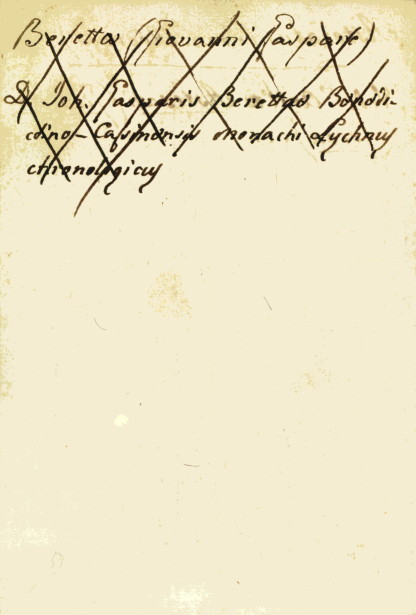 Beretta (Giovanni Gaspare)
D. Joh. Gasparis Berettae Benedi-
ctino-Casinensis monachi Lychnus
chronologicus